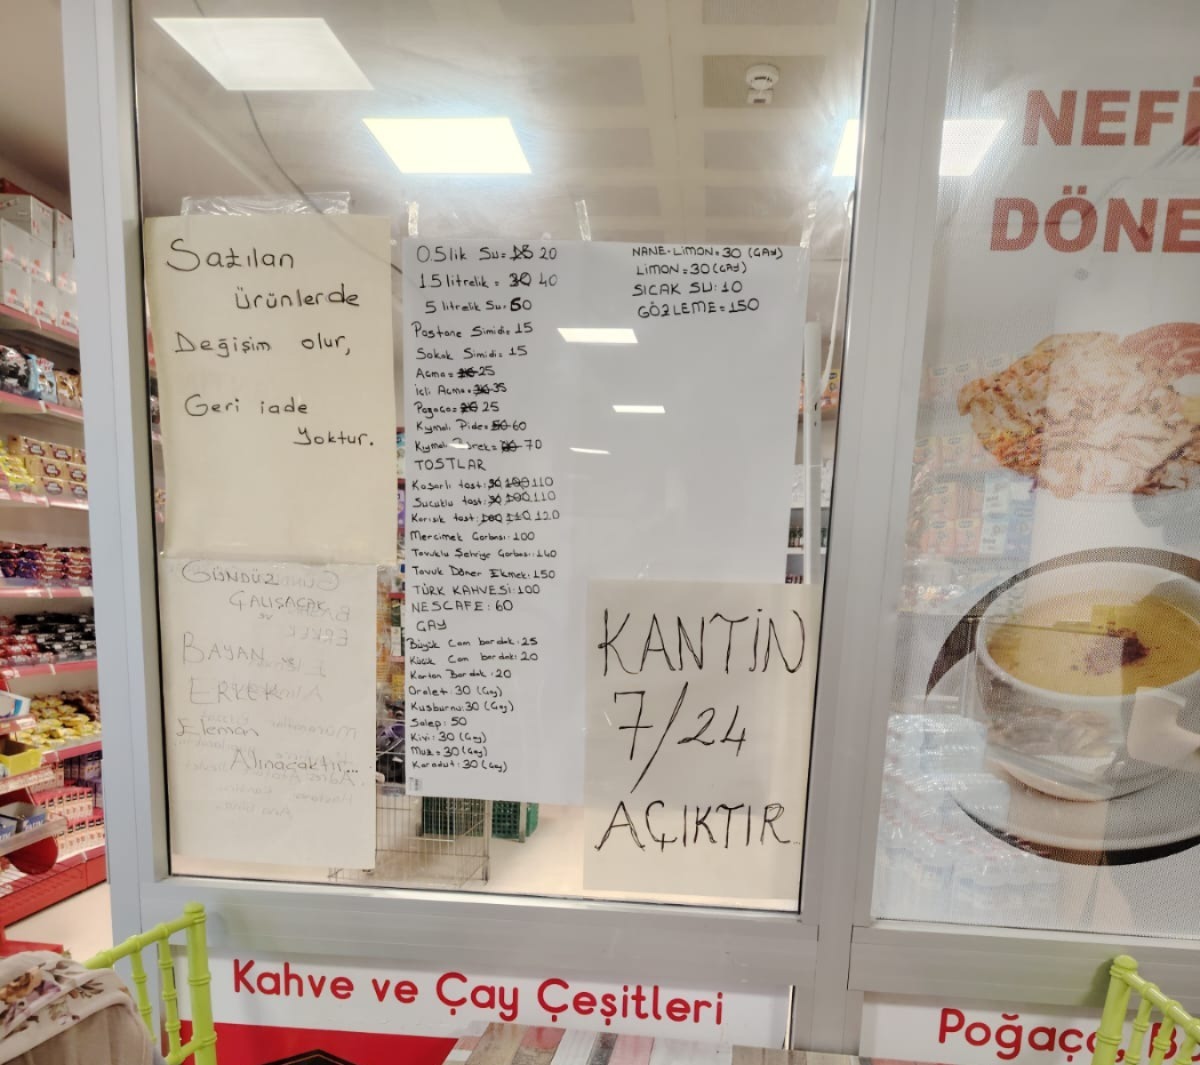 Satılan
ürünlerde
Değişim olur,
Geri iade
Yoktur.
GÜNDÜZ
ÇALIŞACAK
BAYAN ve
ERKEK
Eleman
Alınacaktır.
0.5lik Su= 15 20
1.5 litrelik = 30 40
5 litrelik Su: 60
Pastane Simidi: 15
Sokak Simidi: 15
Açma= 25
İçli Açma= 35
Poğaça= 20 25
Kıymalı Pide= 50 60
Kıymalı Börek= 70
TOSTLAR
Kaşarlı tost: 100 110
Sucuklu tost: 100 110
Karışık tost: 100 110 120
Mercimek Çorbası: 100
Tavuklu Şehriye Çorbası: 140
Tavuk Döner Ekmek: 150
TÜRK KAHVESİ: 100
NESCAFE: 60
ÇAY
Büyük Cam bardak: 25
Küçük Cam bardak: 20
Karton Bardak: 20
Oralet: 30 (Çay)
Kuşburnu: 30 (Çay)
Salep: 50
Kivi: 30 (Çay)
Muz= 30 (Çay)
Karadut: 30 (Çay)
NANE-LİMON= 30 (ÇAY)
LİMON= 30 (ÇAY)
SICAK SU: 10
GÖZLEME= 150
KANTİN
7/24
AÇIKTIR
NEFİ
DÖNE
Kahve ve Çay Çeşitleri
Poğaça, B